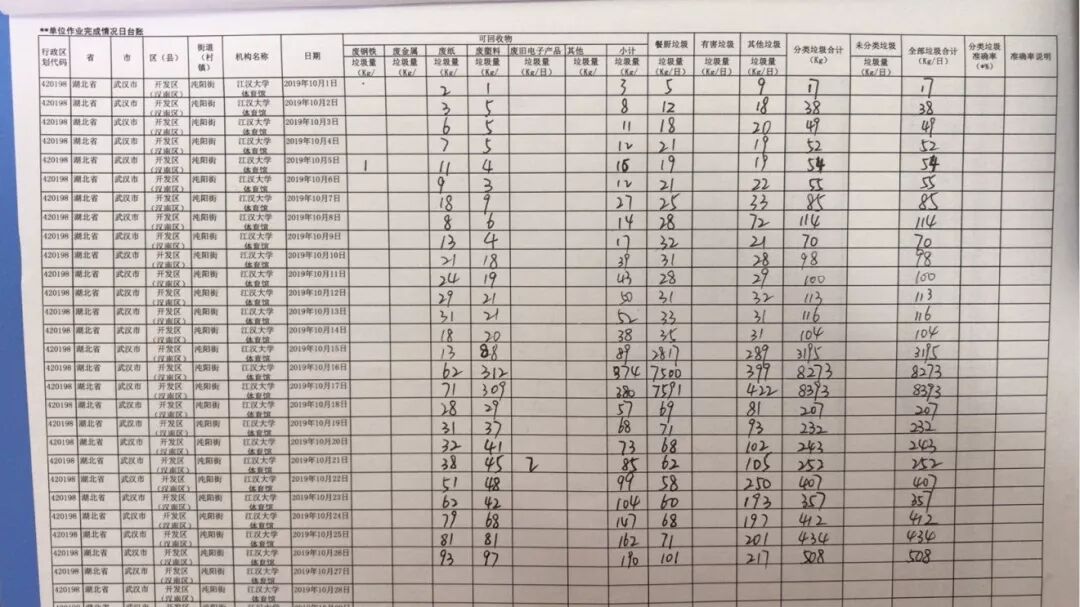 **单位作业完成情况日台账
行政区划代码 省 市 区（县） 街道（村镇） 机构名称 日期 可回收物 餐厨垃圾 有害垃圾 其他垃圾 分类垃圾合计 未分类垃圾 全部垃圾合计 分类垃圾准确率 准确率说明
废钢铁 废金属 废纸 废塑料 废旧电子产品 其他 小计
垃圾量 垃圾量 垃圾量 垃圾量 垃圾量 垃圾量 垃圾量 垃圾量 垃圾量 垃圾量
(Kg/) (Kg/) (Kg/) (Kg/) (Kg/日) (Kg/) (Kg/) (Kg/日) (Kg/日) (Kg/日) (Kg) (Kg/日) (Kg/日) (*%)
420198 湖北省 武汉市 开发区（汉南区） 沌阳街 江汉大学体育馆 2019年10月1日 2 1 3 5 9 17 17
420198 湖北省 武汉市 开发区（汉南区） 沌阳街 江汉大学体育馆 2019年10月2日 3 5 8 12 18 38 38
420198 湖北省 武汉市 开发区（汉南区） 沌阳街 江汉大学体育馆 2019年10月3日 6 5 11 18 20 49 49
420198 湖北省 武汉市 开发区（汉南区） 沌阳街 江汉大学体育馆 2019年10月4日 7 5 12 21 19 52 52
420198 湖北省 武汉市 开发区（汉南区） 沌阳街 江汉大学体育馆 2019年10月5日 1 11 4 16 19 19 54 54
420198 湖北省 武汉市 开发区（汉南区） 沌阳街 江汉大学体育馆 2019年10月6日 9 3 12 21 22 55 55
420198 湖北省 武汉市 开发区（汉南区） 沌阳街 江汉大学体育馆 2019年10月7日 18 9 27 25 33 85 85
420198 湖北省 武汉市 开发区（汉南区） 沌阳街 江汉大学体育馆 2019年10月8日 8 6 14 28 72 114 114
420198 湖北省 武汉市 开发区（汉南区） 沌阳街 江汉大学体育馆 2019年10月9日 13 4 17 32 21 70 70
420198 湖北省 武汉市 开发区（汉南区） 沌阳街 江汉大学体育馆 2019年10月10日 21 18 39 31 28 98 98
420198 湖北省 武汉市 开发区（汉南区） 沌阳街 江汉大学体育馆 2019年10月11日 24 19 43 28 29 100 100
420198 湖北省 武汉市 开发区（汉南区） 沌阳街 江汉大学体育馆 2019年10月12日 29 21 50 31 32 113 113
420198 湖北省 武汉市 开发区（汉南区） 沌阳街 江汉大学体育馆 2019年10月13日 31 21 52 33 31 116 116
420198 湖北省 武汉市 开发区（汉南区） 沌阳街 江汉大学体育馆 2019年10月14日 18 20 38 35 31 104 104
420198 湖北省 武汉市 开发区（汉南区） 沌阳街 江汉大学体育馆 2019年10月15日 13 89 2817 289 3195 3195
420198 湖北省 武汉市 开发区（汉南区） 沌阳街 江汉大学体育馆 2019年10月16日 62 312 374 7500 399 8273 8273
420198 湖北省 武汉市 开发区（汉南区） 沌阳街 江汉大学体育馆 2019年10月17日 71 309 380 7591 422 8393 8393
420198 湖北省 武汉市 开发区（汉南区） 沌阳街 江汉大学体育馆 2019年10月18日 28 29 57 69 81 207 207
420198 湖北省 武汉市 开发区（汉南区） 沌阳街 江汉大学体育馆 2019年10月19日 31 37 68 71 93 232 232
420198 湖北省 武汉市 开发区（汉南区） 沌阳街 江汉大学体育馆 2019年10月20日 32 41 73 68 102 243 243
420198 湖北省 武汉市 开发区（汉南区） 沌阳街 江汉大学体育馆 2019年10月21日 38 45 2 85 62 105 252 252
420198 湖北省 武汉市 开发区（汉南区） 沌阳街 江汉大学体育馆 2019年10月22日 51 48 99 58 250 407 407
420198 湖北省 武汉市 开发区（汉南区） 沌阳街 江汉大学体育馆 2019年10月23日 62 42 104 60 193 357 357
420198 湖北省 武汉市 开发区（汉南区） 沌阳街 江汉大学体育馆 2019年10月24日 79 68 147 68 197 412 412
420198 湖北省 武汉市 开发区（汉南区） 沌阳街 江汉大学体育馆 2019年10月25日 81 81 162 71 201 434 434
420198 湖北省 武汉市 开发区（汉南区） 沌阳街 江汉大学体育馆 2019年10月26日 93 97 190 101 217 508 508
420198 湖北省 武汉市 开发区（汉南区） 沌阳街 江汉大学体育馆 2019年10月27日
420198 湖北省 武汉市 开发区（汉南区） 沌阳街 江汉大学体育馆 2019年10月28日